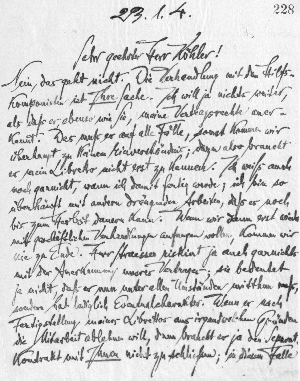 23. 1. 4.
228
Sehr geehrter Herr Köhler!
Nein, das geht nicht. Die Verhandlung mit den Hilfs-
komponisten ist Ihre Sache. Ich will ja nichts weiter,
als daß er ebenso wie Sie, meine Vertragsrechte aner-
kennt. Das muß er auf alle Fälle, sonst kommen wir
überhaupt zu keinem Einverständnis; dann also braucht
er mein Libretto nicht erst zu kennen. Ich weiß auch
noch garnicht, wann ich damit fertig werde; ich bin so
überhäuft mit andern dringenden Arbeiten, daß es noch
bis zum Herbst dauern kann. Wenn wir dann erst wieder
mit geschäftlichen Verhandlungen anfangen wollen, kommen wir
nie zu Ende. Herr Straesser riskirt ja auch garnichts
mit der Anerkennung unseres Vertrages; sie bedeutet
ja nicht, daß er nun unter allen Umständen mitthun muß,
sondern hat lediglich Eventualcharakter. Wenn er nach
Fertigstellung meines Librettos aus irgendwelchen Gründen
die Mitarbeit ablehnen will, dann braucht er ja den Separat-
Kontrakt mit Ihnen nicht zu schließen; in diesem Falle